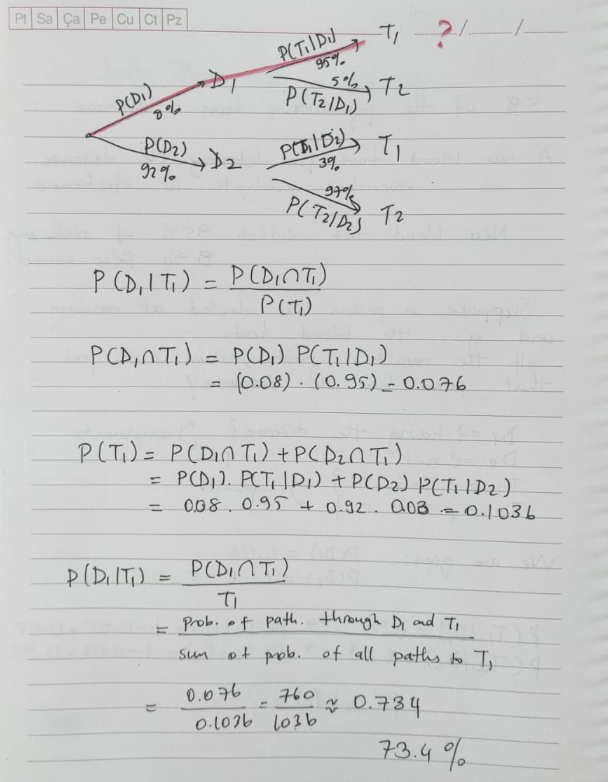 Pt Sa Ça Pe Cu Ct Pz
? / /
P(T₁|D₁) T₁
95%
P(D₁) D₁
8%
5% T₂
P(T₂|D₁)
P(D₂) D₂
92%
P(T₁|D₂) T₁
3%
97%
P(T₂|D₂) T₂
P(D₁|T₁) = P(D₁∩T₁) / P(T₁)
P(D₁∩T₁) = P(D₁) P(T₁|D₁)
= (0.08) . (0.95) = 0.076
P(T₁) = P(D₁∩T₁) + P(D₂∩T₁)
= P(D₁). P(T₁|D₁) + P(D₂) P(T₁|D₂)
= 0.08 . 0.95 + 0.92 . 0.03 = 0.1036
P(D₁|T₁) = P(D₁∩T₁) / T₁
= prob. of path. through D₁ and T₁ / sum of prob. of all paths to T₁
= 0.076 / 0.1036 = 760 / 1036 ≈ 0.734
73.4 %